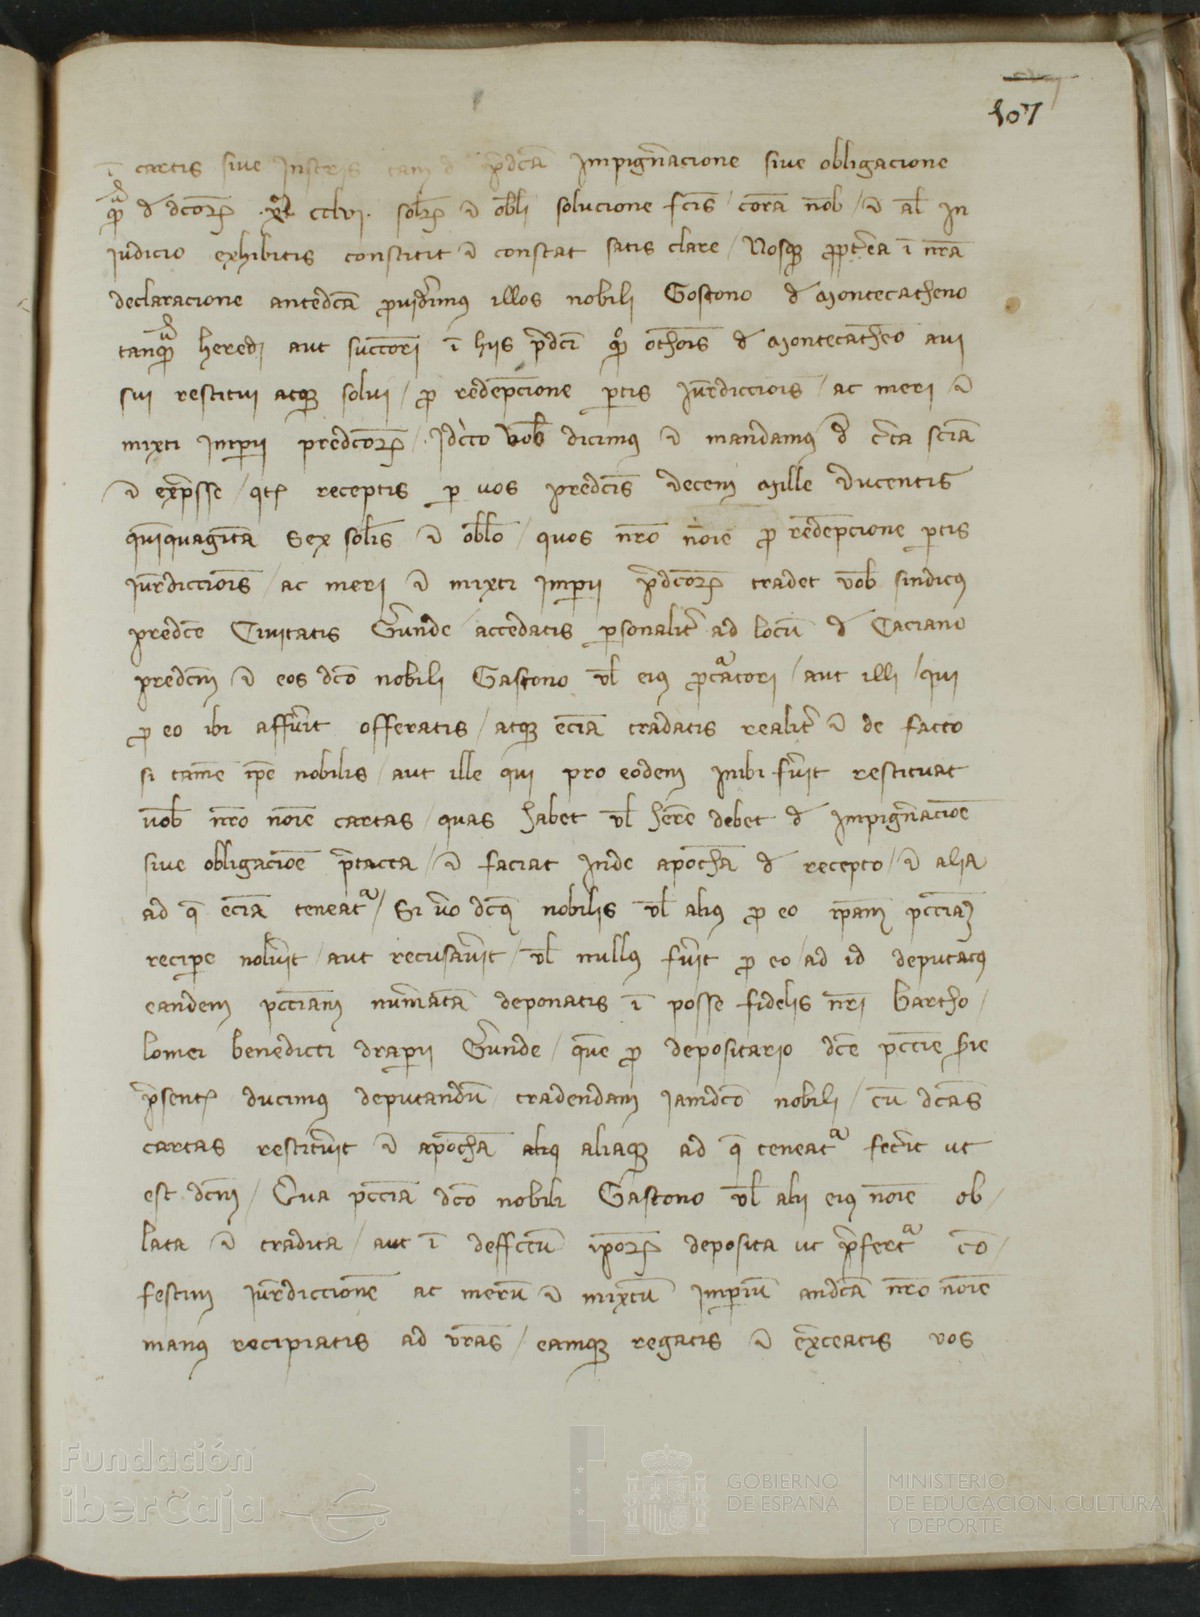 107
ī cartis sive Instris tam d p̄dcā Impigñacione sive obligacione
qᵈm d dcoꝝ .xᵐ cclvi. solꝝ ⁊ obli solucione fcīs / corā nob̄ / ⁊ al̄ In
Judicio exhibitis constitit ⁊ constat satis clare / Nosqꝫ ꝓpt̄ea ī nr̄a
declaracione antedcā ꝓvid̄imꝰ illos nobili Gostono d Montecatheno
tanqᵈm hered aut succōri ī hiis p̄dcī qᵒ othōis d Montecathēo avi
sui restitui atqꝫ solui / ꝓ redēpcione ꝑtis Jur̄diccīois / ac meri ⁊
mixti Imꝑii predcōꝝ / Idc̄co vob̄ dicimꝰ ⁊ mandamꝰ d c̄ta scīa
⁊ exp̄sse / qtꝫ receptis ꝑ vos predcīs decem Mille ducentis
quīquagītā Sex solīs ⁊ oblō / quos nr̄o noīe ꝓ redēpcione ꝑtis
Jur̄diccīois / ac meri ⁊ mixti Imꝑii p̄dcōꝝ tradet vob̄ sindicꝰ
predcē Civitatis Gerunde / accedatis ꝑsonalit̄ ad locū d Caciano
predcm̄ ⁊ eos dcō nobili Gastono vl̄ eiꝰ ꝓcᵃtori / aut illi / qui
ꝓ eo ibi affūit offeratis / atqꝫ ecīa tradatis realit̄ ⁊ de facto
si tamē ip̄e nobilis / aut ille qui pro eodem Inibi fūit restituat
vob̄ nr̄o noīe cartas / quas habet vl̄ her̄e debet d Impigñacīoe
sive obligacīoe p̄tacta / ⁊ faciat Inde apochā d recepto / ⁊ alia
ad q̄ ecīa teneatᵃ / Si v̄o dcꝰ nobilis vl̄ aliꝰ ꝓ eo ip̄am pcc̄iam
reciꝑe nolūit / aut recusav̄it / vl̄ nullꝰ fūit ꝓ eo / ad id deputatꝰ
eandem pcc̄iam num̄atā deponatis ī posse fidelis nr̄i Bartho /
lomei benedicti draꝑii Gerunde / quē ꝓ depositario dcē pcc̄ie s̄ie
p̄sentꝫ ducimꝰ deputandū / tradendam Iamdcō nobili / cū dcās
cartas restitūit ⁊ apochā aliaqꝫ ad q̄ teneatᵃ fec̄it ut
est dcm̄ / Qua pcc̄iā dcō nobili Gastono vl̄ alii eiꝰ noīe ob /
lata ⁊ tradita / aut ī deffctū ip̄oꝝ deposita ut p̄fertᵃ cō /
festim Jur̄diccionē ac merū ⁊ mixtū Imꝑiū andcā nr̄o noīe
manꝰ recipiatis ad vr̄as / eamqꝫ regatis ⁊ exc̄eatis vos
Fundación
iberCaja
GOBIERNO
DE ESPAÑA
MINISTERIO
DE EDUCACIÓN, CULTURA
Y DEPORTE